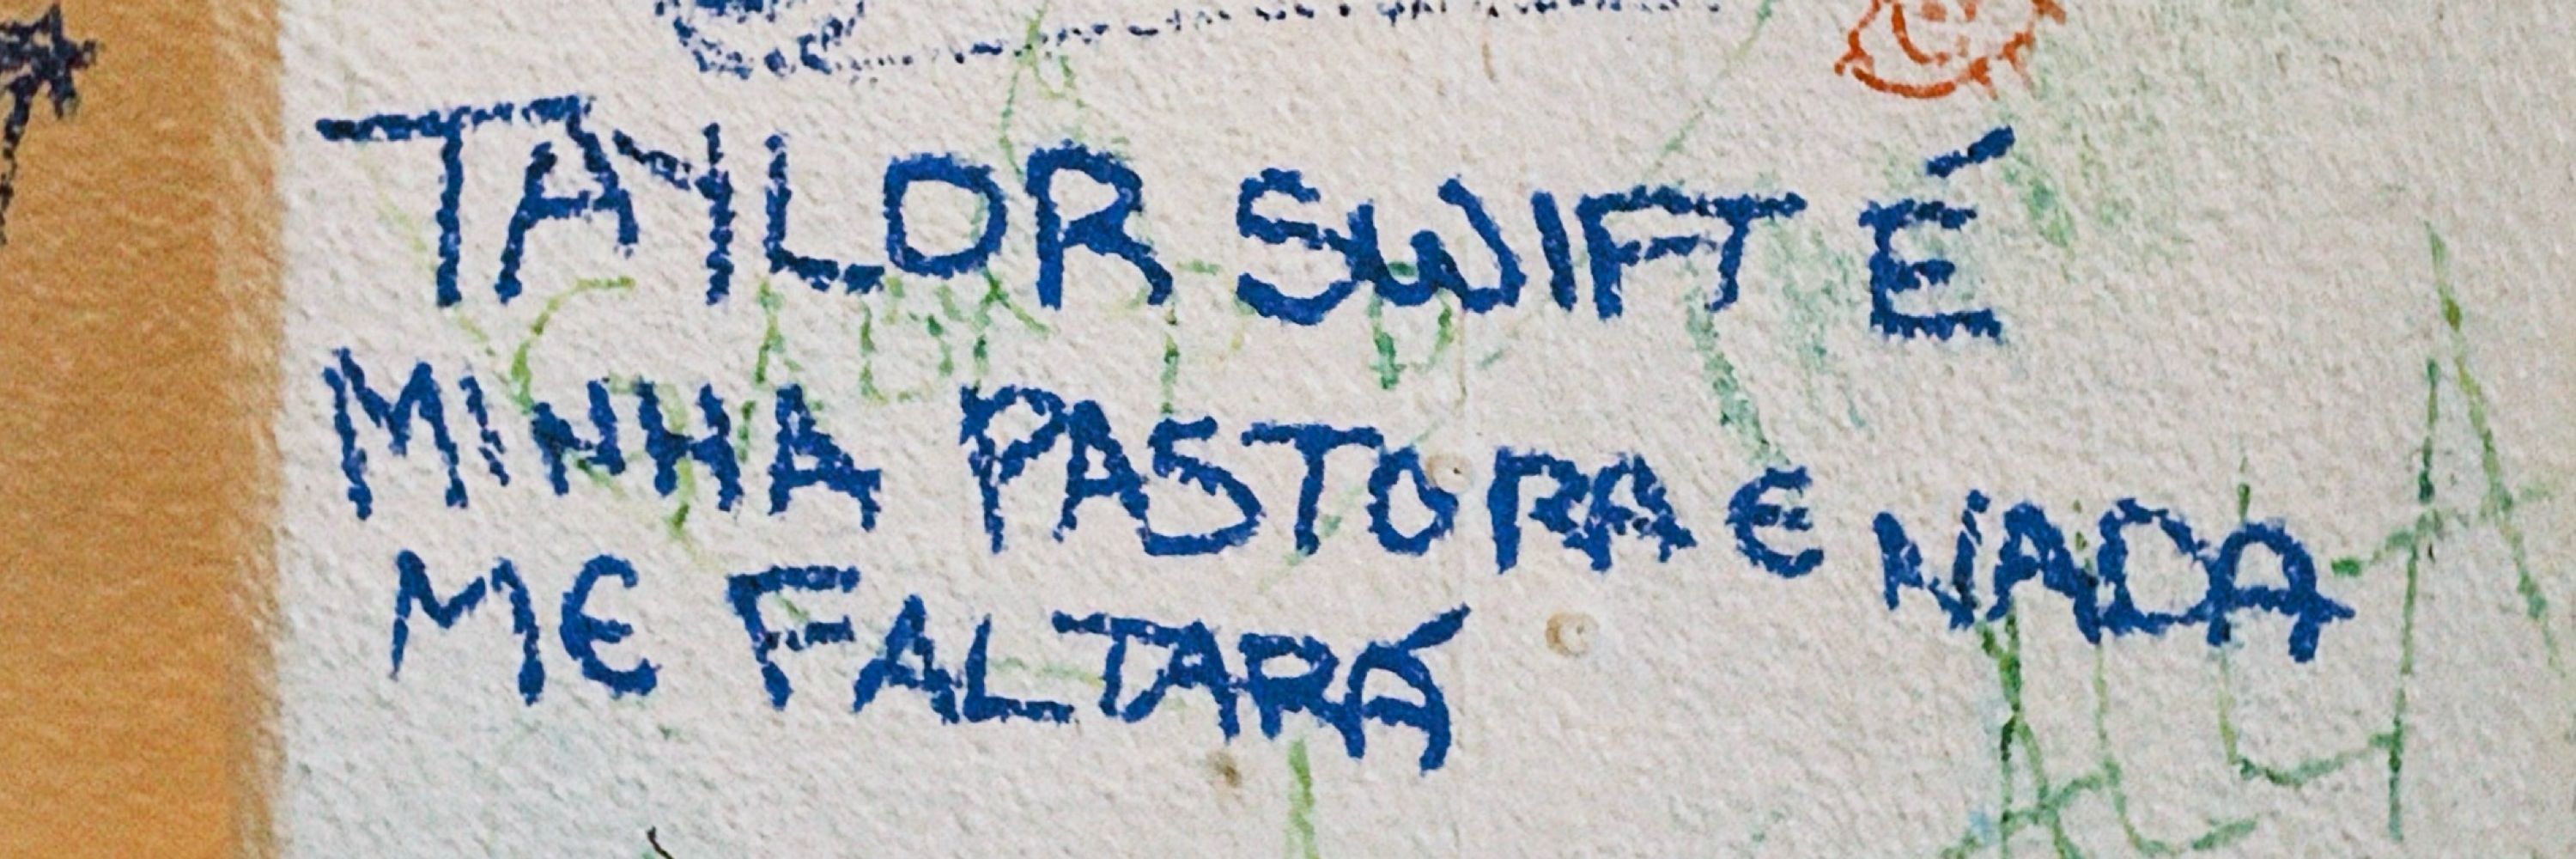 TAYLOR SWIFT É
MINHA PASTORA E NADA
ME FALTARÁ